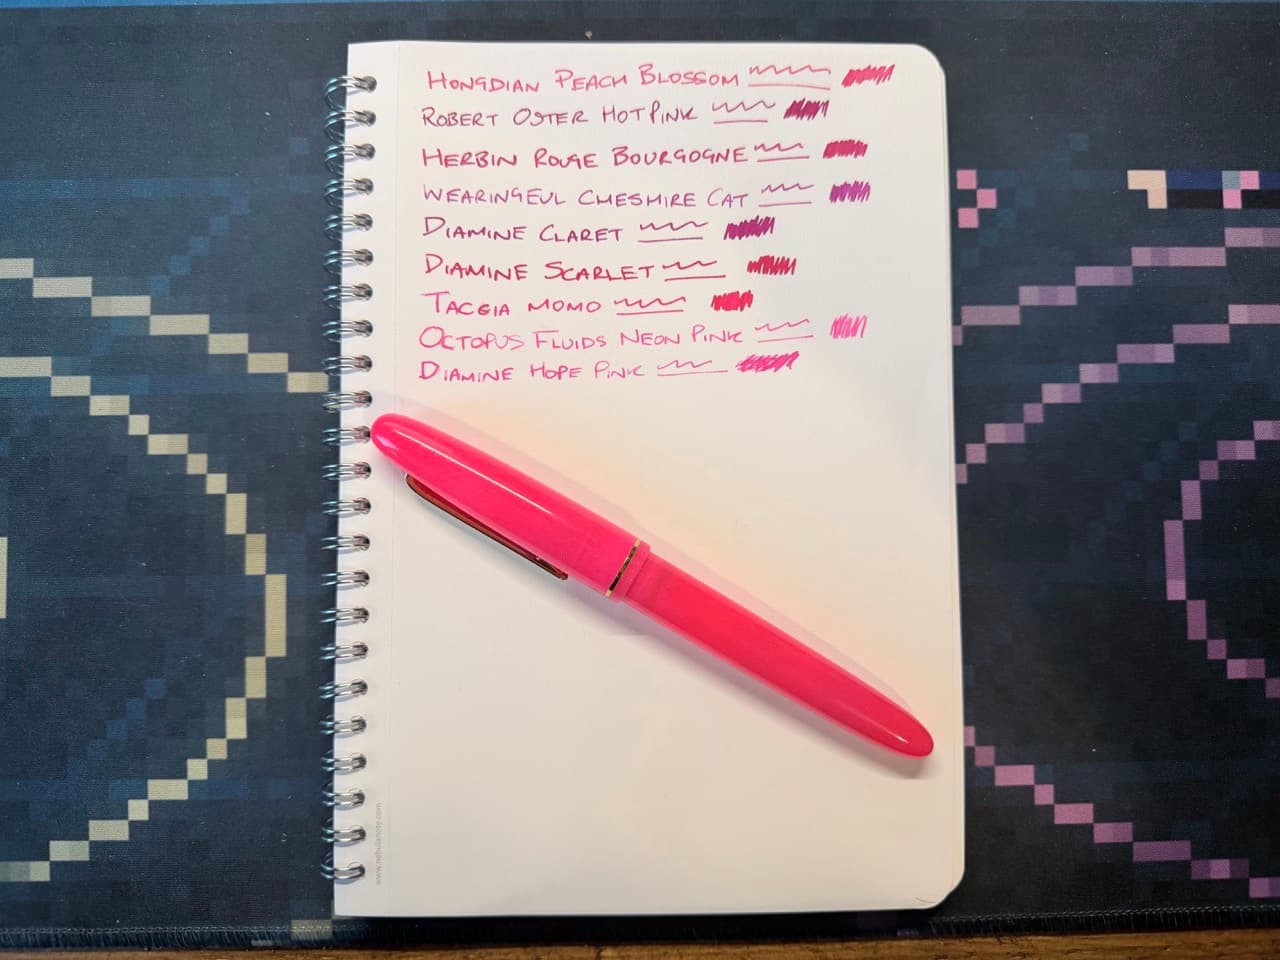 HONGDIAN PEACH BLOSSOM
ROBERT OSTER HOT PINK
HERBIN ROUGE BOURGOGNE
WEARINGEUL CHESHIRE CAT
DIAMINE CLARET
DIAMINE SCARLET
TACCIA MOMO
OCTOPUS FLUIDS NEON PINK
DIAMINE HOPE PINK
www.nebulanote.com